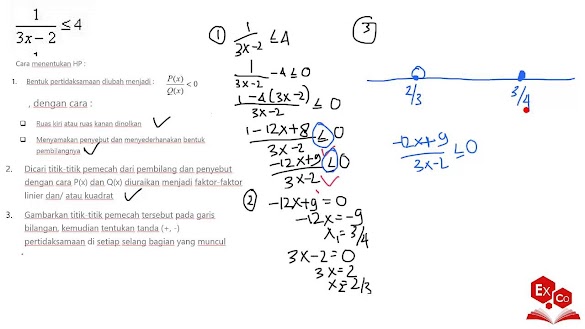 1/(3x-2) ≤ 4
Cara menentukan HP :
1. Bentuk pertidaksamaan diubah menjadi : P(x)/Q(x) < 0
, dengan cara :
Ruas kiri atau ruas kanan dinolkan
Menyamakan penyebut dan menyederhanakan bentuk
pembilangnya
2. Dicari titik-titik pemecah dari pembilang dan penyebut
dengan cara P(x) dan Q(x) diuraikan menjadi faktor-faktor
linier dan/ atau kuadrat
3. Gambarkan titik-titik pemecah tersebut pada garis
bilangan, kemudian tentukan tanda (+, -)
pertidaksamaan di setiap selang bagian yang muncul
.
1
1/(3x-2) ≤ 4
1/(3x-2) - 4 ≤ 0
(1-4(3x-2))/(3x-2) ≤ 0
(1-12x+8)/(3x-2) ≤ 0
(-12x+9)/(3x-2) ≤ 0
2
-12x+9 = 0
-12x = -9
x₁ = 3/4
3x-2 = 0
3x = 2
x = 2/3
3
2/3 3/4
(-12x+9)/(3x-2) ≤ 0
Ex
Co